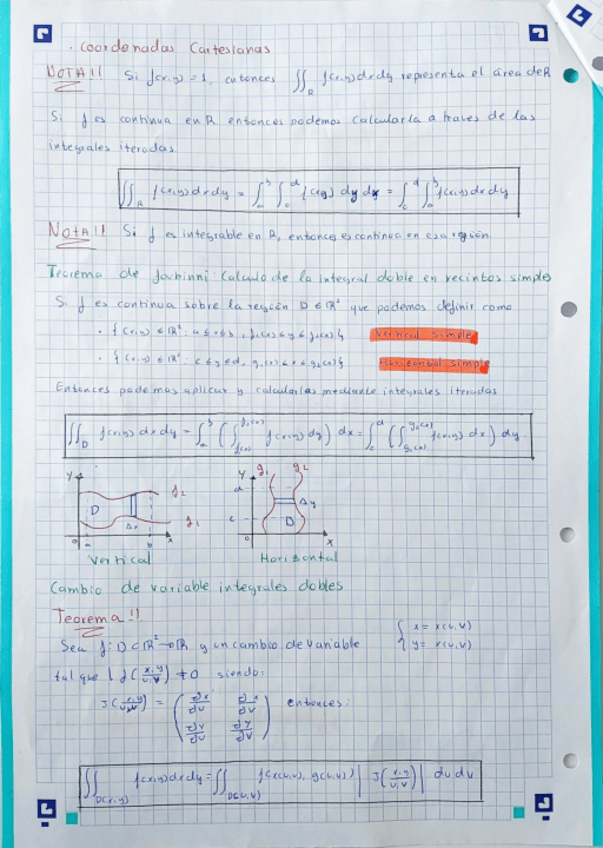 · Coordenadas Cartesianas
NOTA!! Si f(x,y) = 1, entonces ∬_R f(x,y)dxdy representa el área de R
Si f es continua en R entonces podemos calcularla a traves de las
integrales iteradas.
∬_R f(x,y)dxdy = ∫_a^b ∫_c^d f(x,y) dy dx = ∫_c^d ∫_a^b f(x,y)dxdy
NOTA!! Si f es integrable en R, entonces es continua en esa región.
Teorema de : Calculo de la integral doble en recintos simples
Si f es continua sobre la región D ∈ R² que podemos definir como
· { (x,y) ∈ R² : a ≤ x ≤ b, f₁(x) ≤ y ≤ f₂(x) } Vertical simple
· { (x,y) ∈ R² : c ≤ y ≤ d, g₁(x) ≤ x ≤ g₂(x) } Horizontal simple
Entonces podemos aplicar y calcularlas mediante integrales iteradas
∬_D f(x,y) dxdy = ∫_a^b ( ∫_{f₁(x)}^{f₂(x)} f(x,y) dy ) dx = ∫_c^d ( ∫_{g₁(x)}^{g₂(x)} f(x,y) dx ) dy
y f₂ D Δx f₁ 0 a b x
y g₁ g₂ d Δy c D 0 x
Vertical Horizontal
Cambio de variable integrales dobles
Teorema!!
Sea f: D ⊂ R² → R y un cambio de variable { x = x(u,v)
y = x(u,v)
tal que | J(x,y / u,v) ≠ 0 siendo:
J(x,y / u,v) = ( ∂x/∂u ∂x/∂v
∂y/∂u ∂y/∂v ) entonces:
∬_{D(x,y)} f(x,y)dxdy = ∬_{D(u,v)} f(x(u,v), y(u,v)) | J(x,y / u,v) | du dv